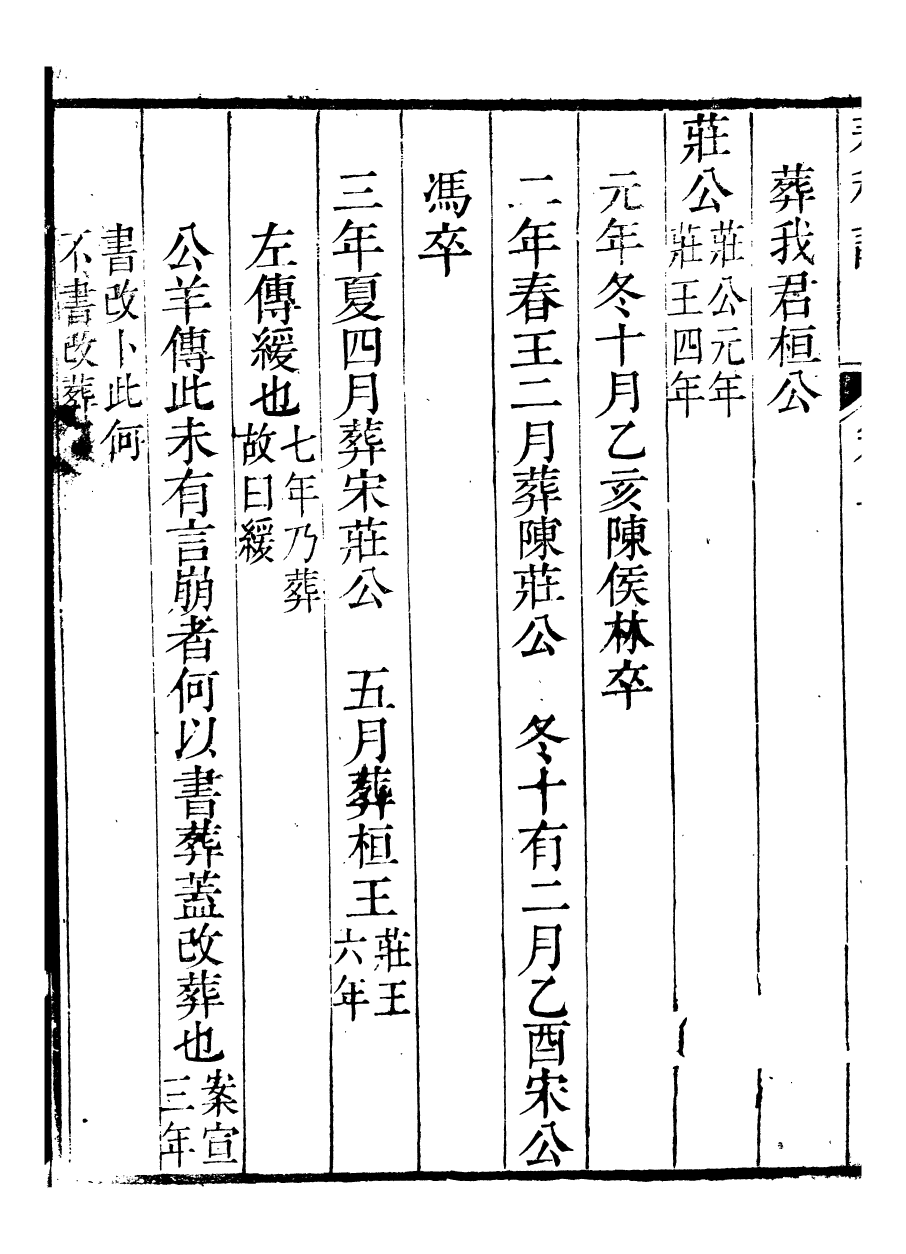 葬我君桓公
莊公莊公元年莊王四年
元年冬十月乙亥陳侯林卒
二年春王二月葬陳莊公　冬十有二月乙酉宋公
馮卒
三年夏四月葬宋莊公　五月葬桓王莊王六年
左傳緩也七年乃葬故曰緩
公羊傳此未有言崩者何以書葬蓋改葬也案宣三年
書改卜此何不書改葬